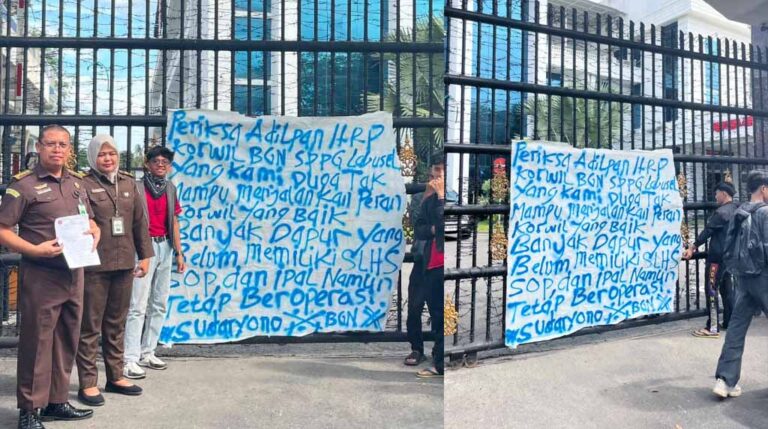 Periksa Adilpan HRP
Korwil BGN SPPG Labusel
Yang kami Duga Tak
Mampu Menjalankan Peran
Korwil Yang Baik
Banyak Dapur Yang
Belum Memiliki SLHS
SOP dan IPAL Namun
Tetap Beroperasi
#Sudaryono BGN
Periksa Adilpan HRP
Korwil BGN SPPG Labusel
Yang kami Duga Tak
Mampu Menjalankan Peran
Korwil Yang Baik
Banyak Dapur Yang
Belum Memiliki SLHS
SOP dan IPAL Namun
Tetap Beroperasi
#Sudaryono BGN